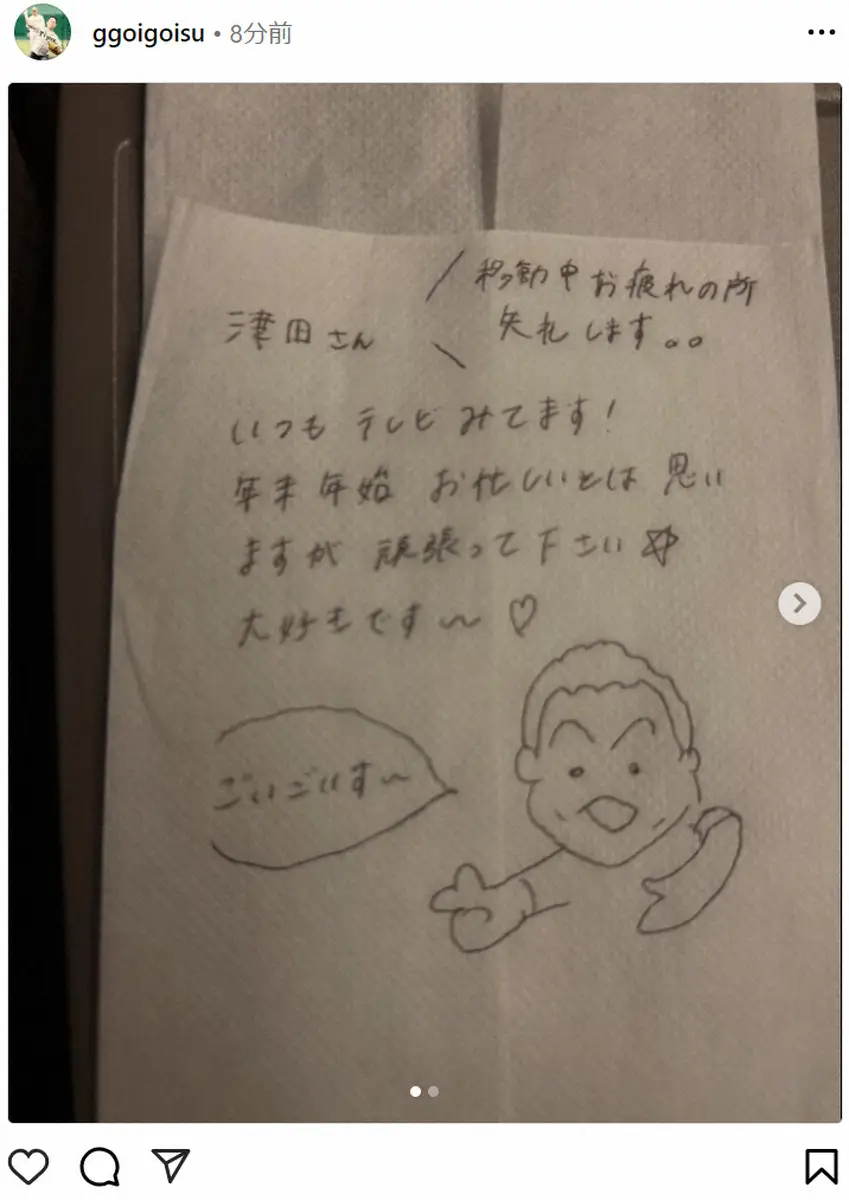 ggoigoisu • 8分前
移動中お疲れの所
失礼します。。
津田さん
いつも テレビ みてます！
年末年始 お忙しいとは 思い
ますが 頑張って下さい☆
大好きです〜♡
ごいごいす〜